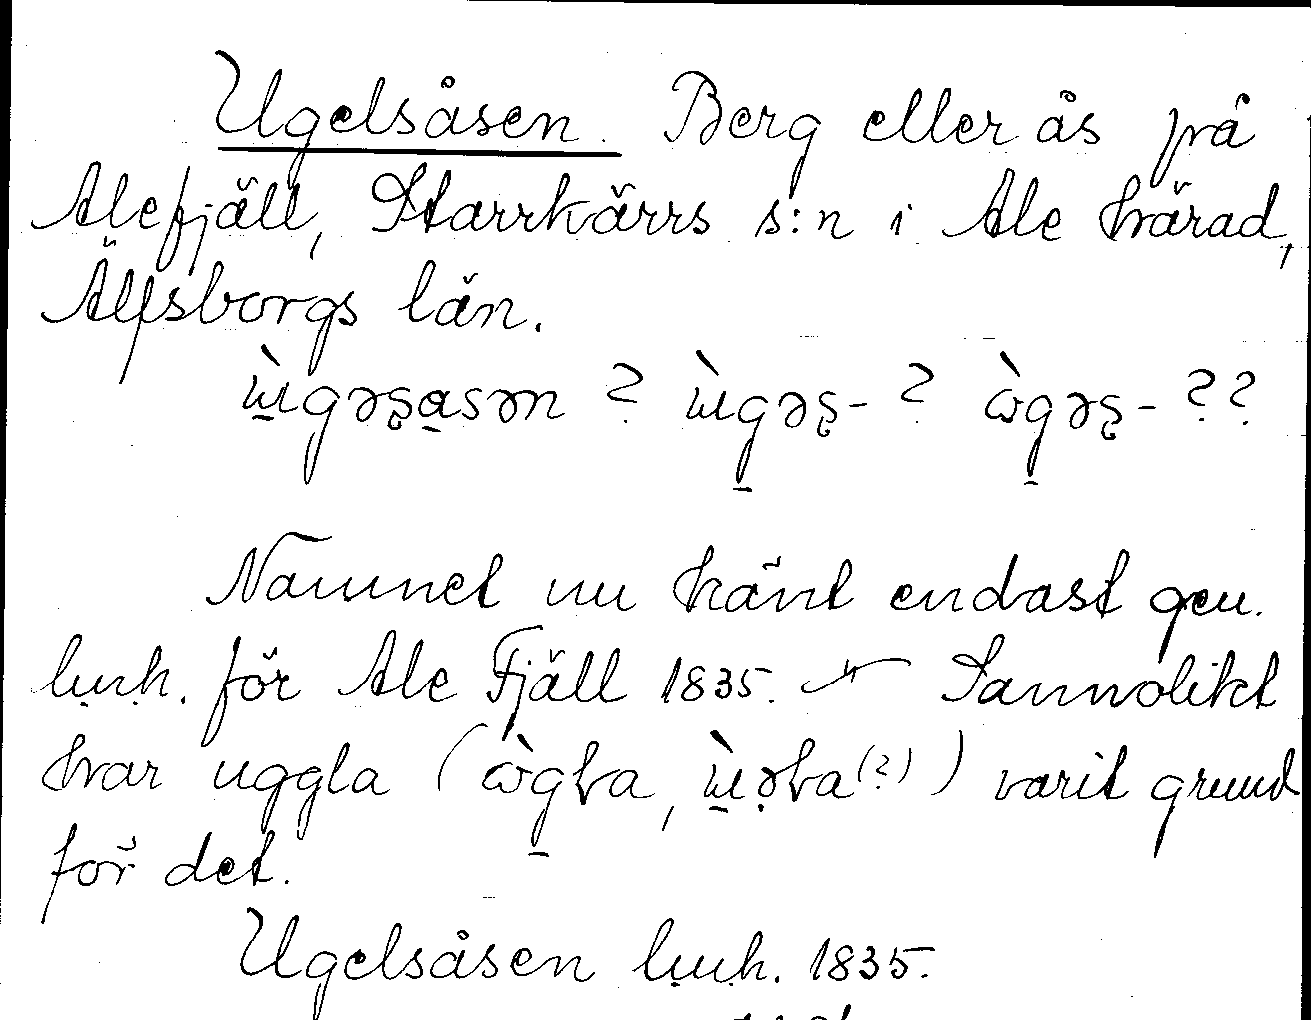 Ugelsåsen. Berg eller ås på
Alefjäll, Starrkärrs s:n i Ale härad,
Älfsborgs län.
ɯ̱̀gəʂa̱sən ? ɯ̀g̱əʂ- ? ὼg̱əʂ- ??
Namnet nu känt endast gen.
lmh. för Ale Fjäll 1835. — Sannolikt
har uggla (ὼg̱ɫa, ɯ̱̀ə̣ɫa(?)) varit grund
för det.
Ugelsåsen lmh. 1835.